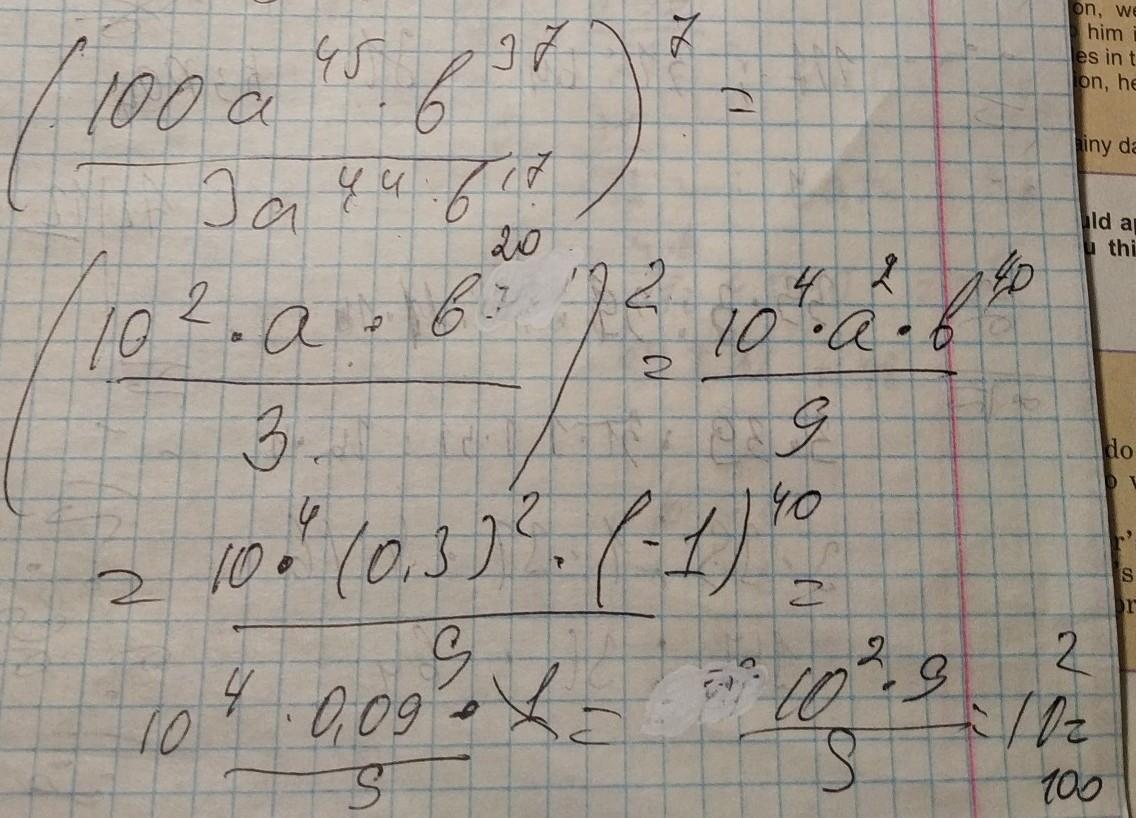 (100a^45 · b^37 / 3a^44 · b^17)^7 =
(10^2 · a · b^20 / 3)^2 = 10^4 · a^2 · b^40 / 9
= 10^4 · (0,3)^2 · (-1)^40 / 9 =
10^4 · 0,09 · 1 / 9 = 10^2 · 9 / 9 = 10^2 =
100
on, we
him i
es in t
ion, he
ainy da
uld ap
u thi
do
r'
's